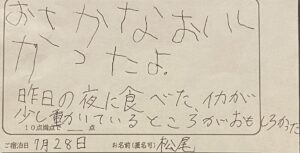 おさかなおいし
かったよ。
昨日の夜に食べた、イカが
少し動いているところがおもしろかった
10点満点で 点
ご宿泊日 7月28日 お名前(匿名可) 松尾